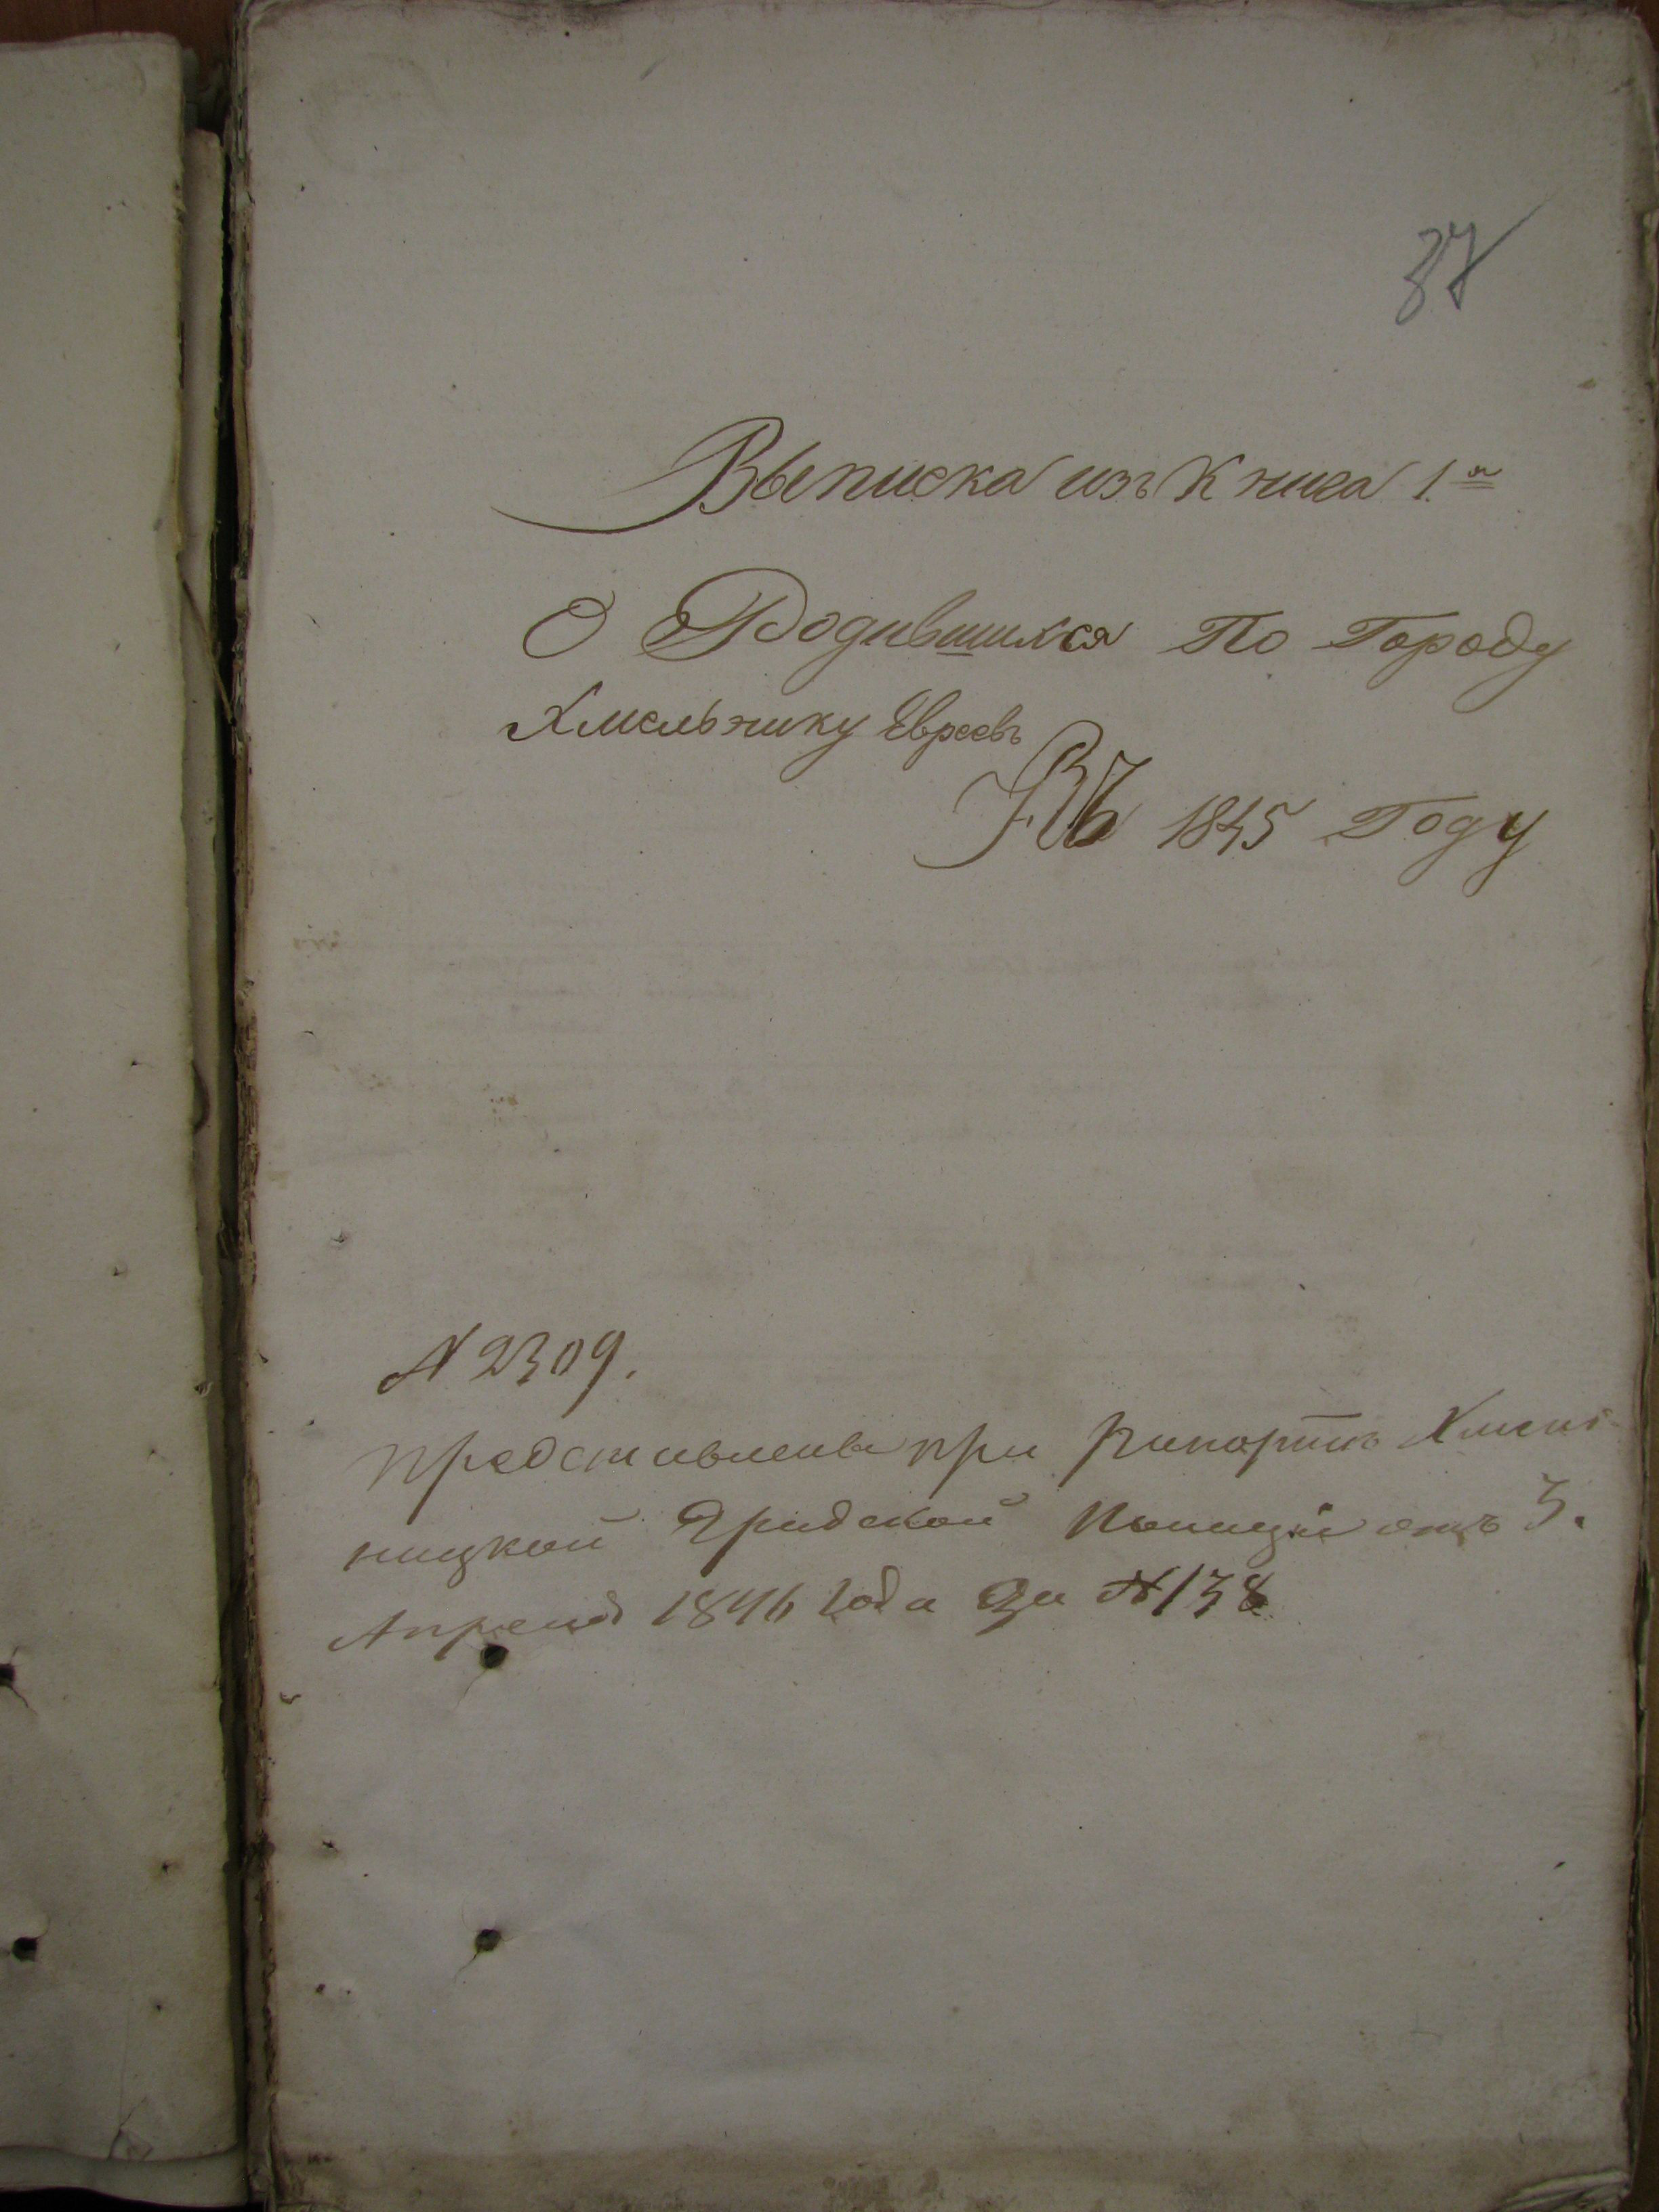 37
Выписка изъ Книга 1.я
О Родившихся По Городу
Хмельнику Евреевъ
Въ 1845 Году
№ 2309.
представлена при рапортѣ Хмель
ницкой Градской Полиціи отъ 3.
Апреля 1846 года За № 138